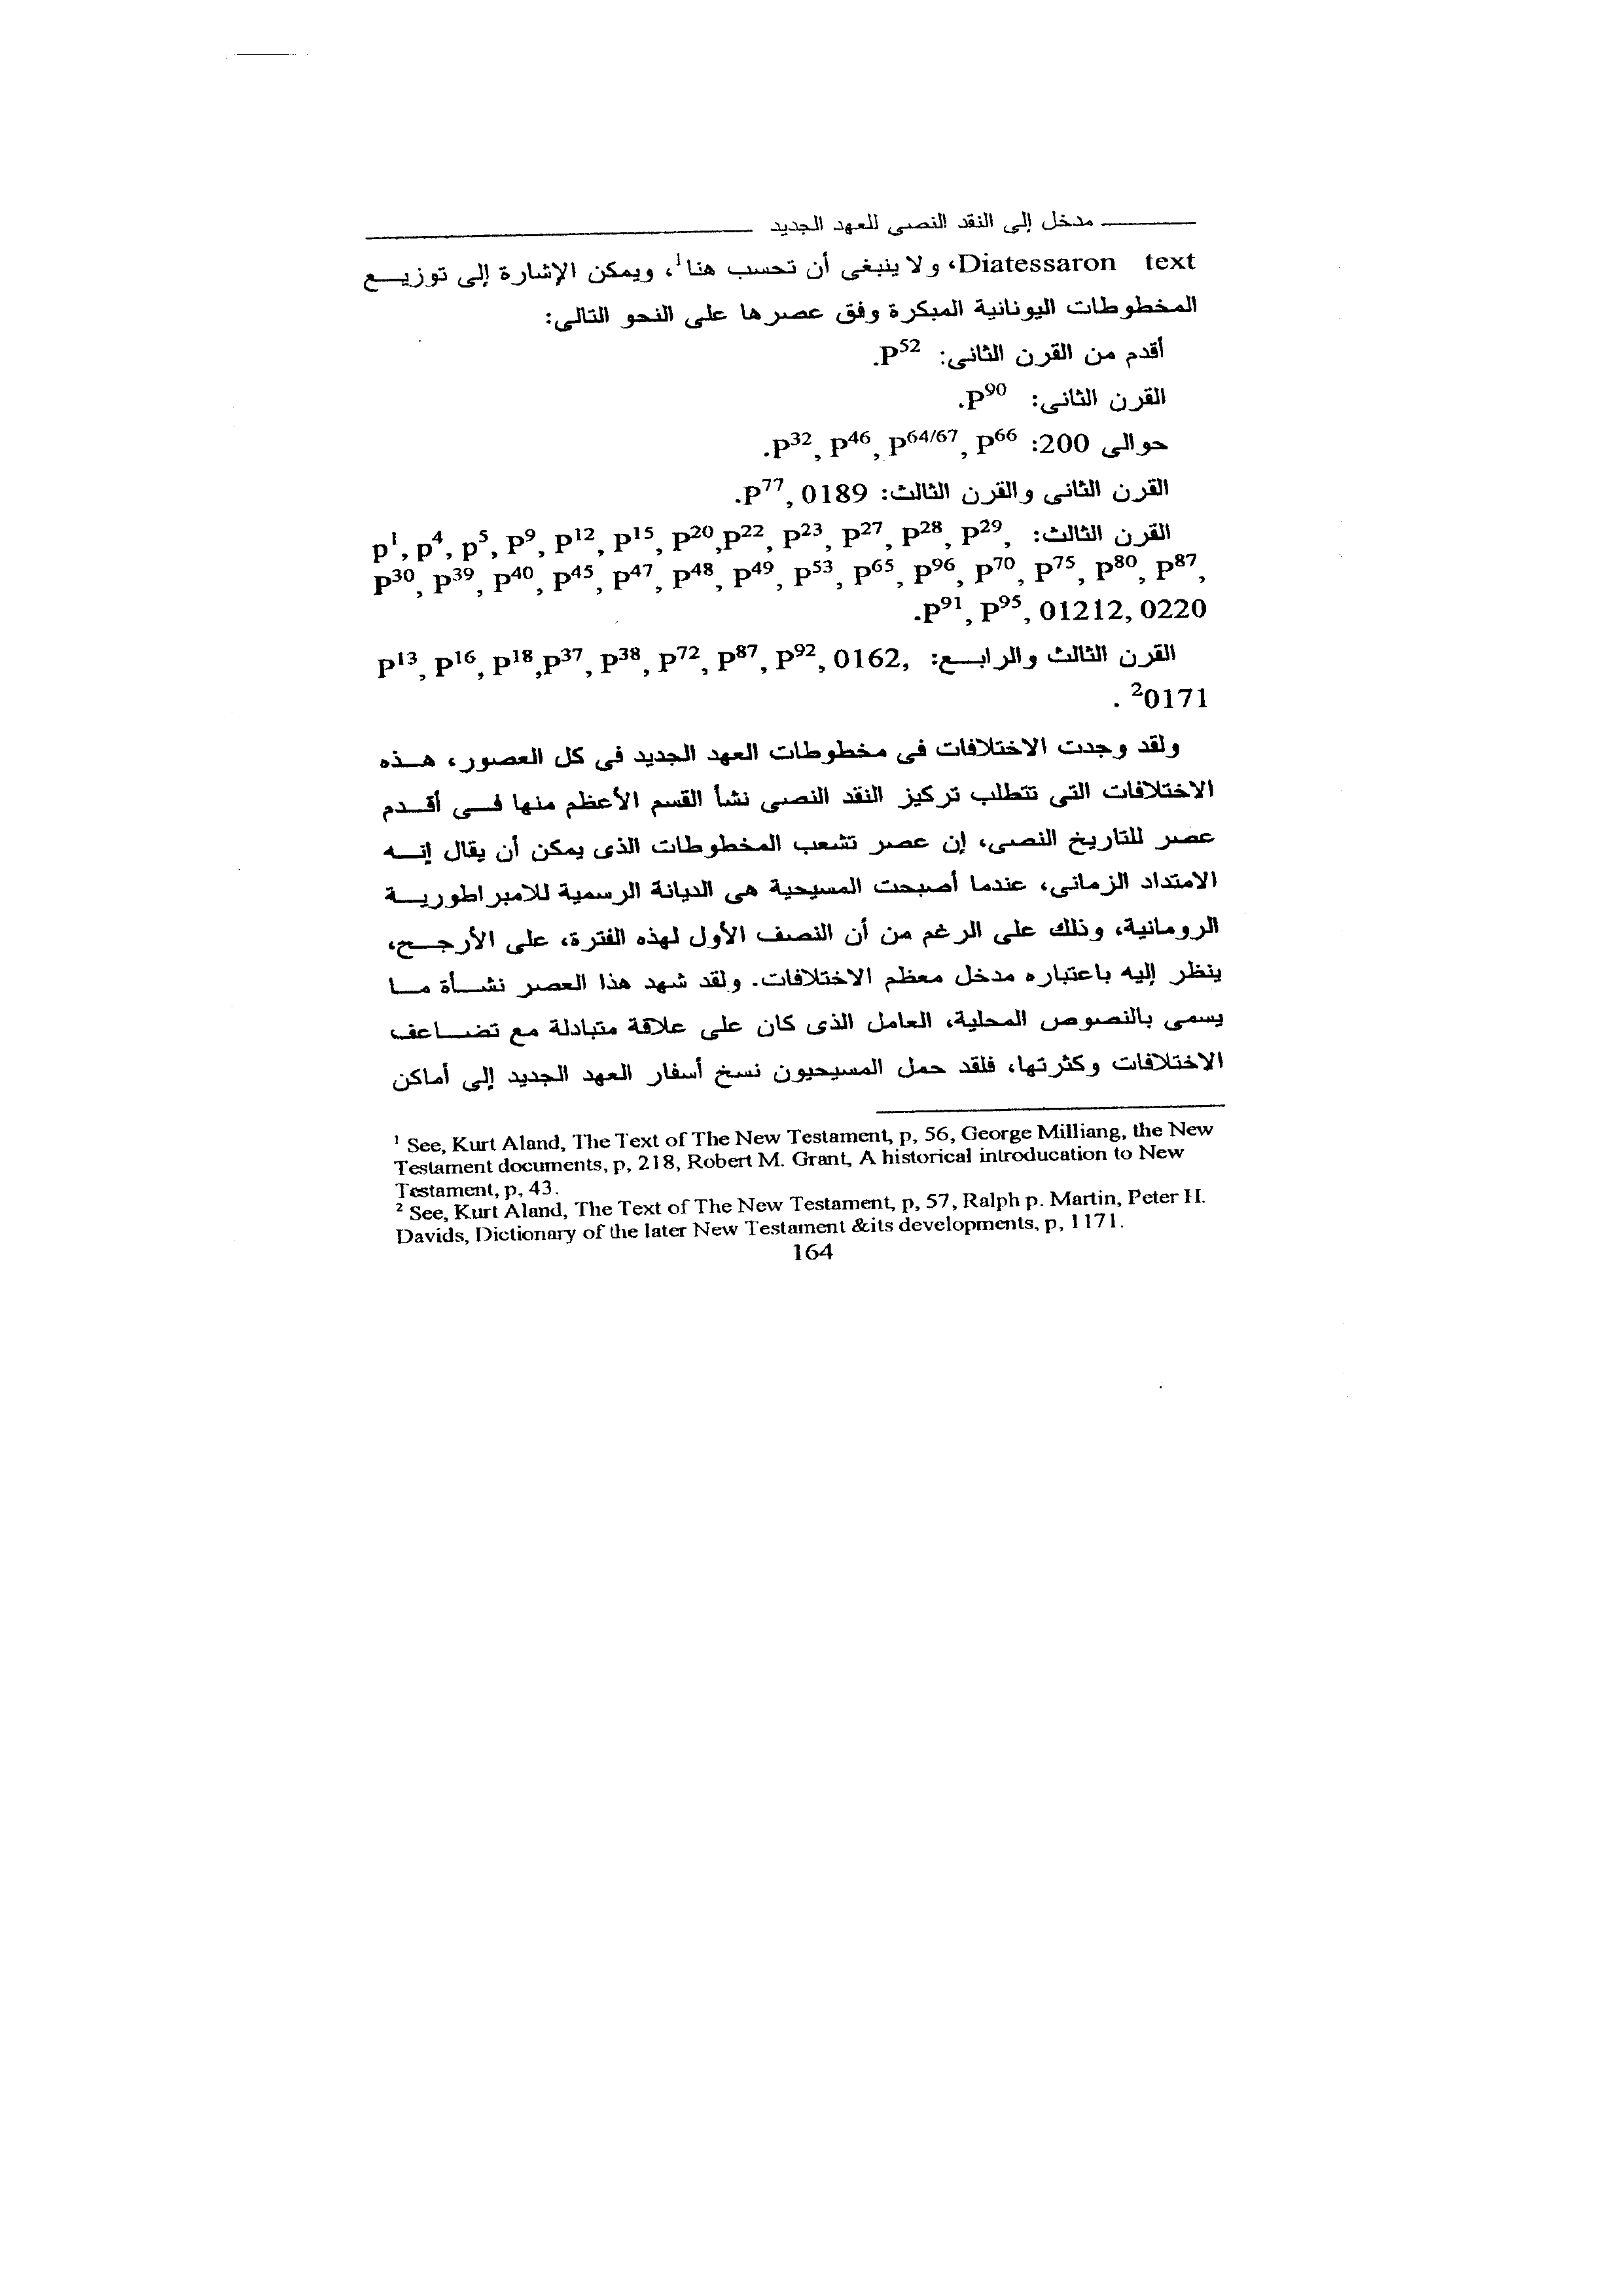 مدخل إلى النقد النصى للعهد الجديد
Diatessaron text، ولا ينبغى أن تحسب هنا¹، ويمكن الإشارة إلى توزيــع
المخطوطات اليونانية المبكرة وفق عصرها على النحو التالى:
أقدم من القرن الثانى: P⁵².
القرن الثانى: P⁹⁰.
حوالى 200: P³², P⁴⁶, P⁶⁴/⁶⁷, P⁶⁶.
القرن الثانى والقرن الثالث: P⁷⁷, 0189.
القرن الثالث: P¹, P⁴, P⁵, P⁹, P¹², P¹⁵, P²⁰,P²², P²³, P²⁷, P²⁸, P²⁹,
P³⁰, P³⁹, P⁴⁰, P⁴⁵, P⁴⁷, P⁴⁸, P⁴⁹, P⁵³, P⁶⁵, P⁹⁶, P⁷⁰, P⁷⁵, P⁸⁰, P⁸⁷,
P⁹¹, P⁹⁵, 01212, 0220.
القرن الثالث والرابــع: P¹³, P¹⁶, P¹⁸,P³⁷, P³⁸, P⁷², P⁸⁷, P⁹², 0162,
0171² .
ولقد وجدت الاختلافات فى مخطوطات العهد الجديد فى كل العصور، هــذه
الاختلافات التى تتطلب تركيز النقد النصى نشأ القسم الأعظم منها فــى أقــدم
عصر للتاريخ النصى، إن عصر تشعب المخطوطات الذى يمكن أن يقال إنــه
الامتداد الزمانى، عندما أصبحت المسيحية هى الديانة الرسمية للامبراطوريــة
الرومانية، وذلك على الرغم من أن النصف الأول لهذه الفترة، على الأرجــح،
ينظر إليه باعتباره مدخل معظم الاختلافات. ولقد شهد هذا العصر نشــأة مــا
يسمى بالنصوص المحلية، العامل الذى كان على علاقة متبادلة مع تضــاعف
الاختلافات وكثرتها، فلقد حمل المسيحيون نسخ أسفار العهد الجديد إلى أماكن
¹ See, Kurt Aland, The Text of The New Testament, p, 56, George Milliang, the New
Testament documents, p, 218, Robert M. Grant, A historical introducation to New
Testament, p, 43.
² See, Kurt Aland, The Text of The New Testament, p, 57, Ralph p. Martin, Peter H.
Davids, Dictionary of the later New Testament &its developments, p, 1171.
164